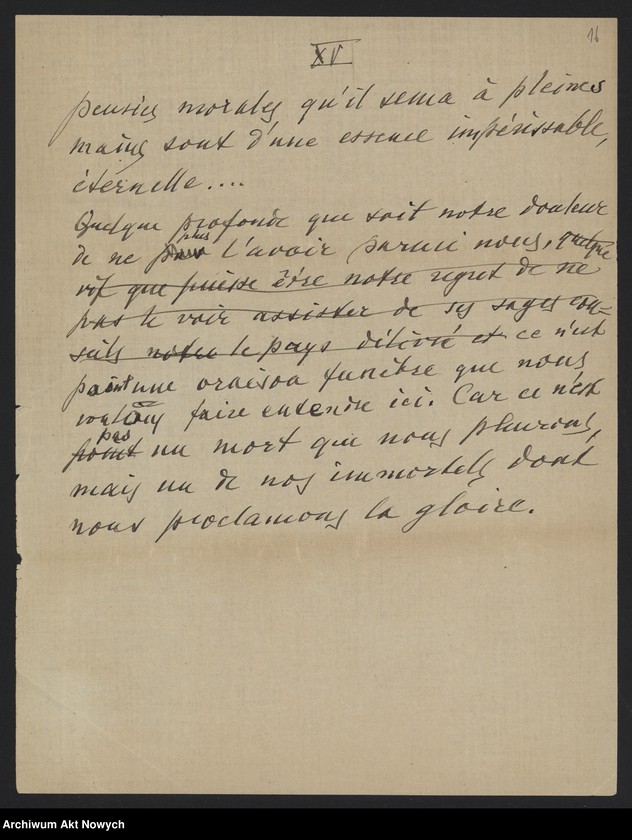 16
XV
pensées morales qu'il sema à pleines
mains sont d'une essence impérissable,
éternelle....
Quelque profonde que soit notre douleur
de ne plus l'avoir parmi nous, quelque
vif que puisse être notre regret de ne
pas le voir assister de ses sages con=
seils notre le pays délivré et ce n'est
point une oraison funèbre que nous
voulons faire entendre ici. Car ce n'est
pas
point un mort que nous pleurons,
mais un de nos immortels dont
nous proclamons la gloire.
Archiwum Akt Nowych